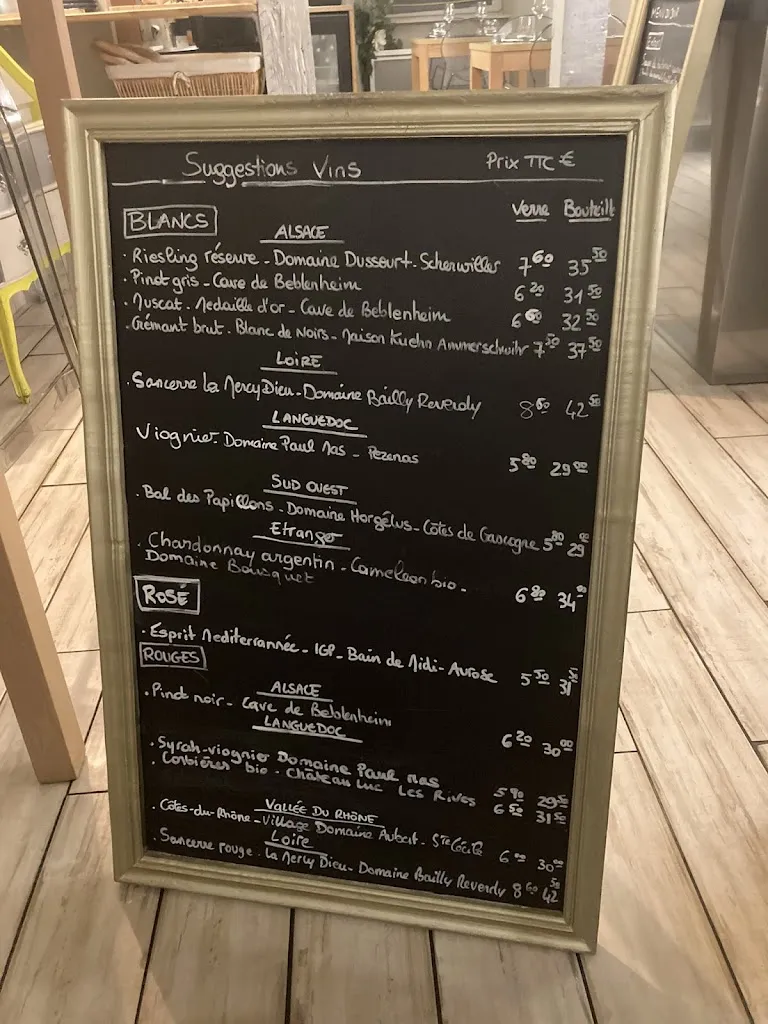 Suggestions Vins Prix TTC €
Verre Bouteille
BLANCS
ALSACE
· Riesling réserve - Domaine Dussourt - Scherwiller 7 60 35 50
· Pinot gris - Cave de Beblenheim 6 20 31 50
· Muscat - Médaille d'or - Cave de Beblenheim 6 60 32 50
· Crémant brut - Blanc de Noirs - Maison Kuehn Ammerschwihr 7 50 37 50
LOIRE
· Sancerre La Mercy Dieu - Domaine Bailly Reverdy 8 60 42 50
LANGUEDOC
Viognier - Domaine Paul Mas - Pezenas 5 80 29 00
SUD OUEST
· Bal des Papillons - Domaine Horgélus - Côtes de Gascogne 5 80 29
Etranger
· Chardonnay argentin - Cameleon bio - 6 80 34
Domaine Bousquet
ROSÉ
· Esprit Méditerrannée - IGP - Bain de Midi - Aurose 5 50 31
ROUGES
ALSACE
· Pinot noir - Cave de Beblenheim 6 20 30 00
LANGUEDOC
· Syrah-viognier Domaine Paul Mas 5 90 29 50
· Corbières bio - Château Luc Les Rives 6 50 31 50
VALLÉE DU RHÔNE
· Côtes-du-Rhône - Village Domaine Aubert - Ste Cécile 6 30 00
Loire
· Sancerre rouge - La Mercy Dieu - Domaine Bailly Reverdy 8 60 42 50